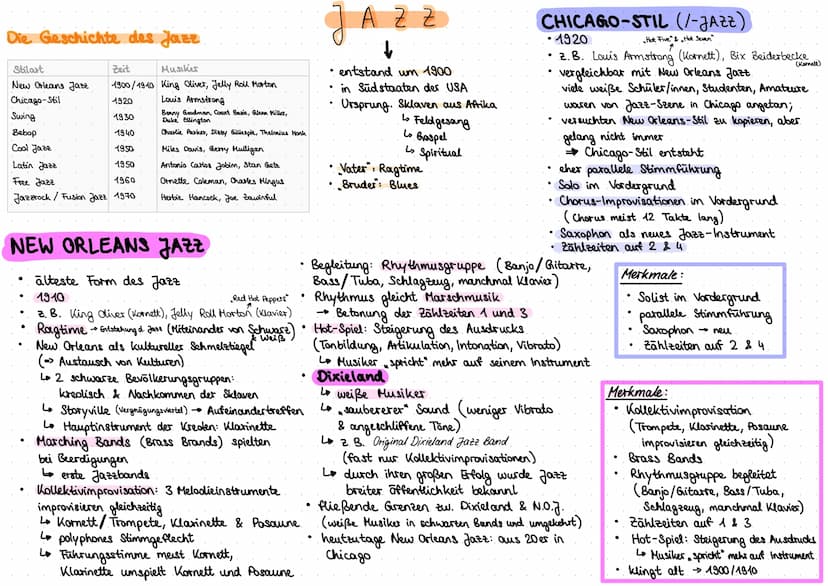 Die Geschichte des Jazz
Stilart Zeit Musiker
New Orleans Jazz 1900/1910 King Oliver, Jelly Roll Morton
Chicago-Stil 1920 Louis Armstrong
Swing 1930 Benny Goodman, Count Basie, Glenn Miller, Duke Ellington
Bebop 1940 Charlie Parker, Dizzy Gillespie, Thelonius Monk
Cool Jazz 1950 Miles Davis, Gerry Mulligan
Latin Jazz 1950 Antonio Carlos Jobim, Stan Getz
Free Jazz 1960 Ornette Coleman, Charles Mingus
Jazzrock / Fusion Jazz 1970 Herbie Hancock, Joe Zawinful
JAZZ
↓
• entstand um 1900
• in Südstaaten der USA
• Ursprung: Sklaven aus Afrika
↳ Feldgesang
↳ Gospel
↳ Spiritual
• „Vater": Ragtime
• „Bruder": Blues
CHICAGO-STIL (/-JAZZ)
• 1920 „Hot Five" & „Hot Seven"
• z.B. Louis Armstrong (Kornett), Bix Beiderbecke (Kornett)
• vergleichbar mit New Orleans Jazz
viele weiße Schüler/innen, Studenten, Amateure
waren von Jazz-Szene in Chicago angetan;
• versuchten New Orleans-Stil zu kopieren, aber
gelang nicht immer
→ Chicago-Stil entsteht
• eher parallele Stimmführung
• Solo im Vordergrund
• Chorus-Improvisationen im Vordergrund
(Chorus meist 12 Takte lang)
• Saxophon als neues Jazz-Instrument
• Zählzeiten auf 2 & 4
Merkmale:
• Solist im Vordergrund
• parallele Stimmführung
• Saxophon → neu
• Zählzeiten auf 2 & 4
NEW ORLEANS JAZZ
• älteste Form des Jazz
• 1910 „Red Hot Peppers"
• z.B. King Oliver (Kornett), Jelly Roll Morton (Klavier)
• Ragtime → Entstehung d. Jazz (Miteinander von Schwarz & Weiß)
• New Orleans als kultureller Schmelztiegel
(⇒ Austausch von Kulturen)
↳ 2 schwarze Bevölkerungsgruppen:
kreolisch & Nachkommen der Sklaven
↳ Storyville (Vergnügungsviertel) → Aufeinandertreffen
↳ Hauptinstrument der Kreolen: Klarinette
• Marching Bands (Brass Brands) spielten
bei Beerdigungen
↳ erste Jazzbands
• Kollektivimprovisation: 3 Melodieinstrumente
improvisieren gleichzeitig
↳ Kornett/Trompete, Klarinette & Posaune
↳ polyphones Stimmgeflecht
↳ Führungsstimme meist Kornett,
Klarinette umspielt Kornett und Posaune
• Begleitung: Rhythmusgruppe (Banjo/Gitarre,
Bass/Tuba, Schlagzeug, manchmal Klavier)
• Rhythmus gleicht Marschmusik
→ Betonung der Zählzeiten 1 und 3
• Hot-Spiel: Steigerung des Ausdrucks
(Tonbildung, Artikulation, Intonation, Vibrato)
↳ Musiker „spricht" mehr auf seinem Instrument
• Dixieland
↳ weiße Musiker
↳ „saubererer" Sound (weniger Vibrato
& angeschliffene Töne)
↳ z.B. Original Dixieland Jazz Band
(fast nur Kollektivimprovisationen)
↳ durch ihren großen Erfolg wurde Jazz
breiter Öffentlichkeit bekannt
• fließende Grenzen zw. Dixieland & N.O.J.
(weiße Musiker in schwarzen Bands und umgekehrt)
• heutzutage New Orleans Jazz: aus 20er in
Chicago
Merkmale:
• Kollektivimprovisation
(Trompete, Klarinette, Posaune
improvisieren gleichzeitig)
• Brass Bands
• Rhythmusgruppe begleitet
(Banjo/Gitarre, Bass/Tuba,
Schlagzeug, manchmal Klavier)
• Zählzeiten auf 1 & 3
• Hot-Spiel: Steigerung des Ausdrucks
↳ Musiker „spricht" mehr auf Instrument
• klingt alt → 1900/1910